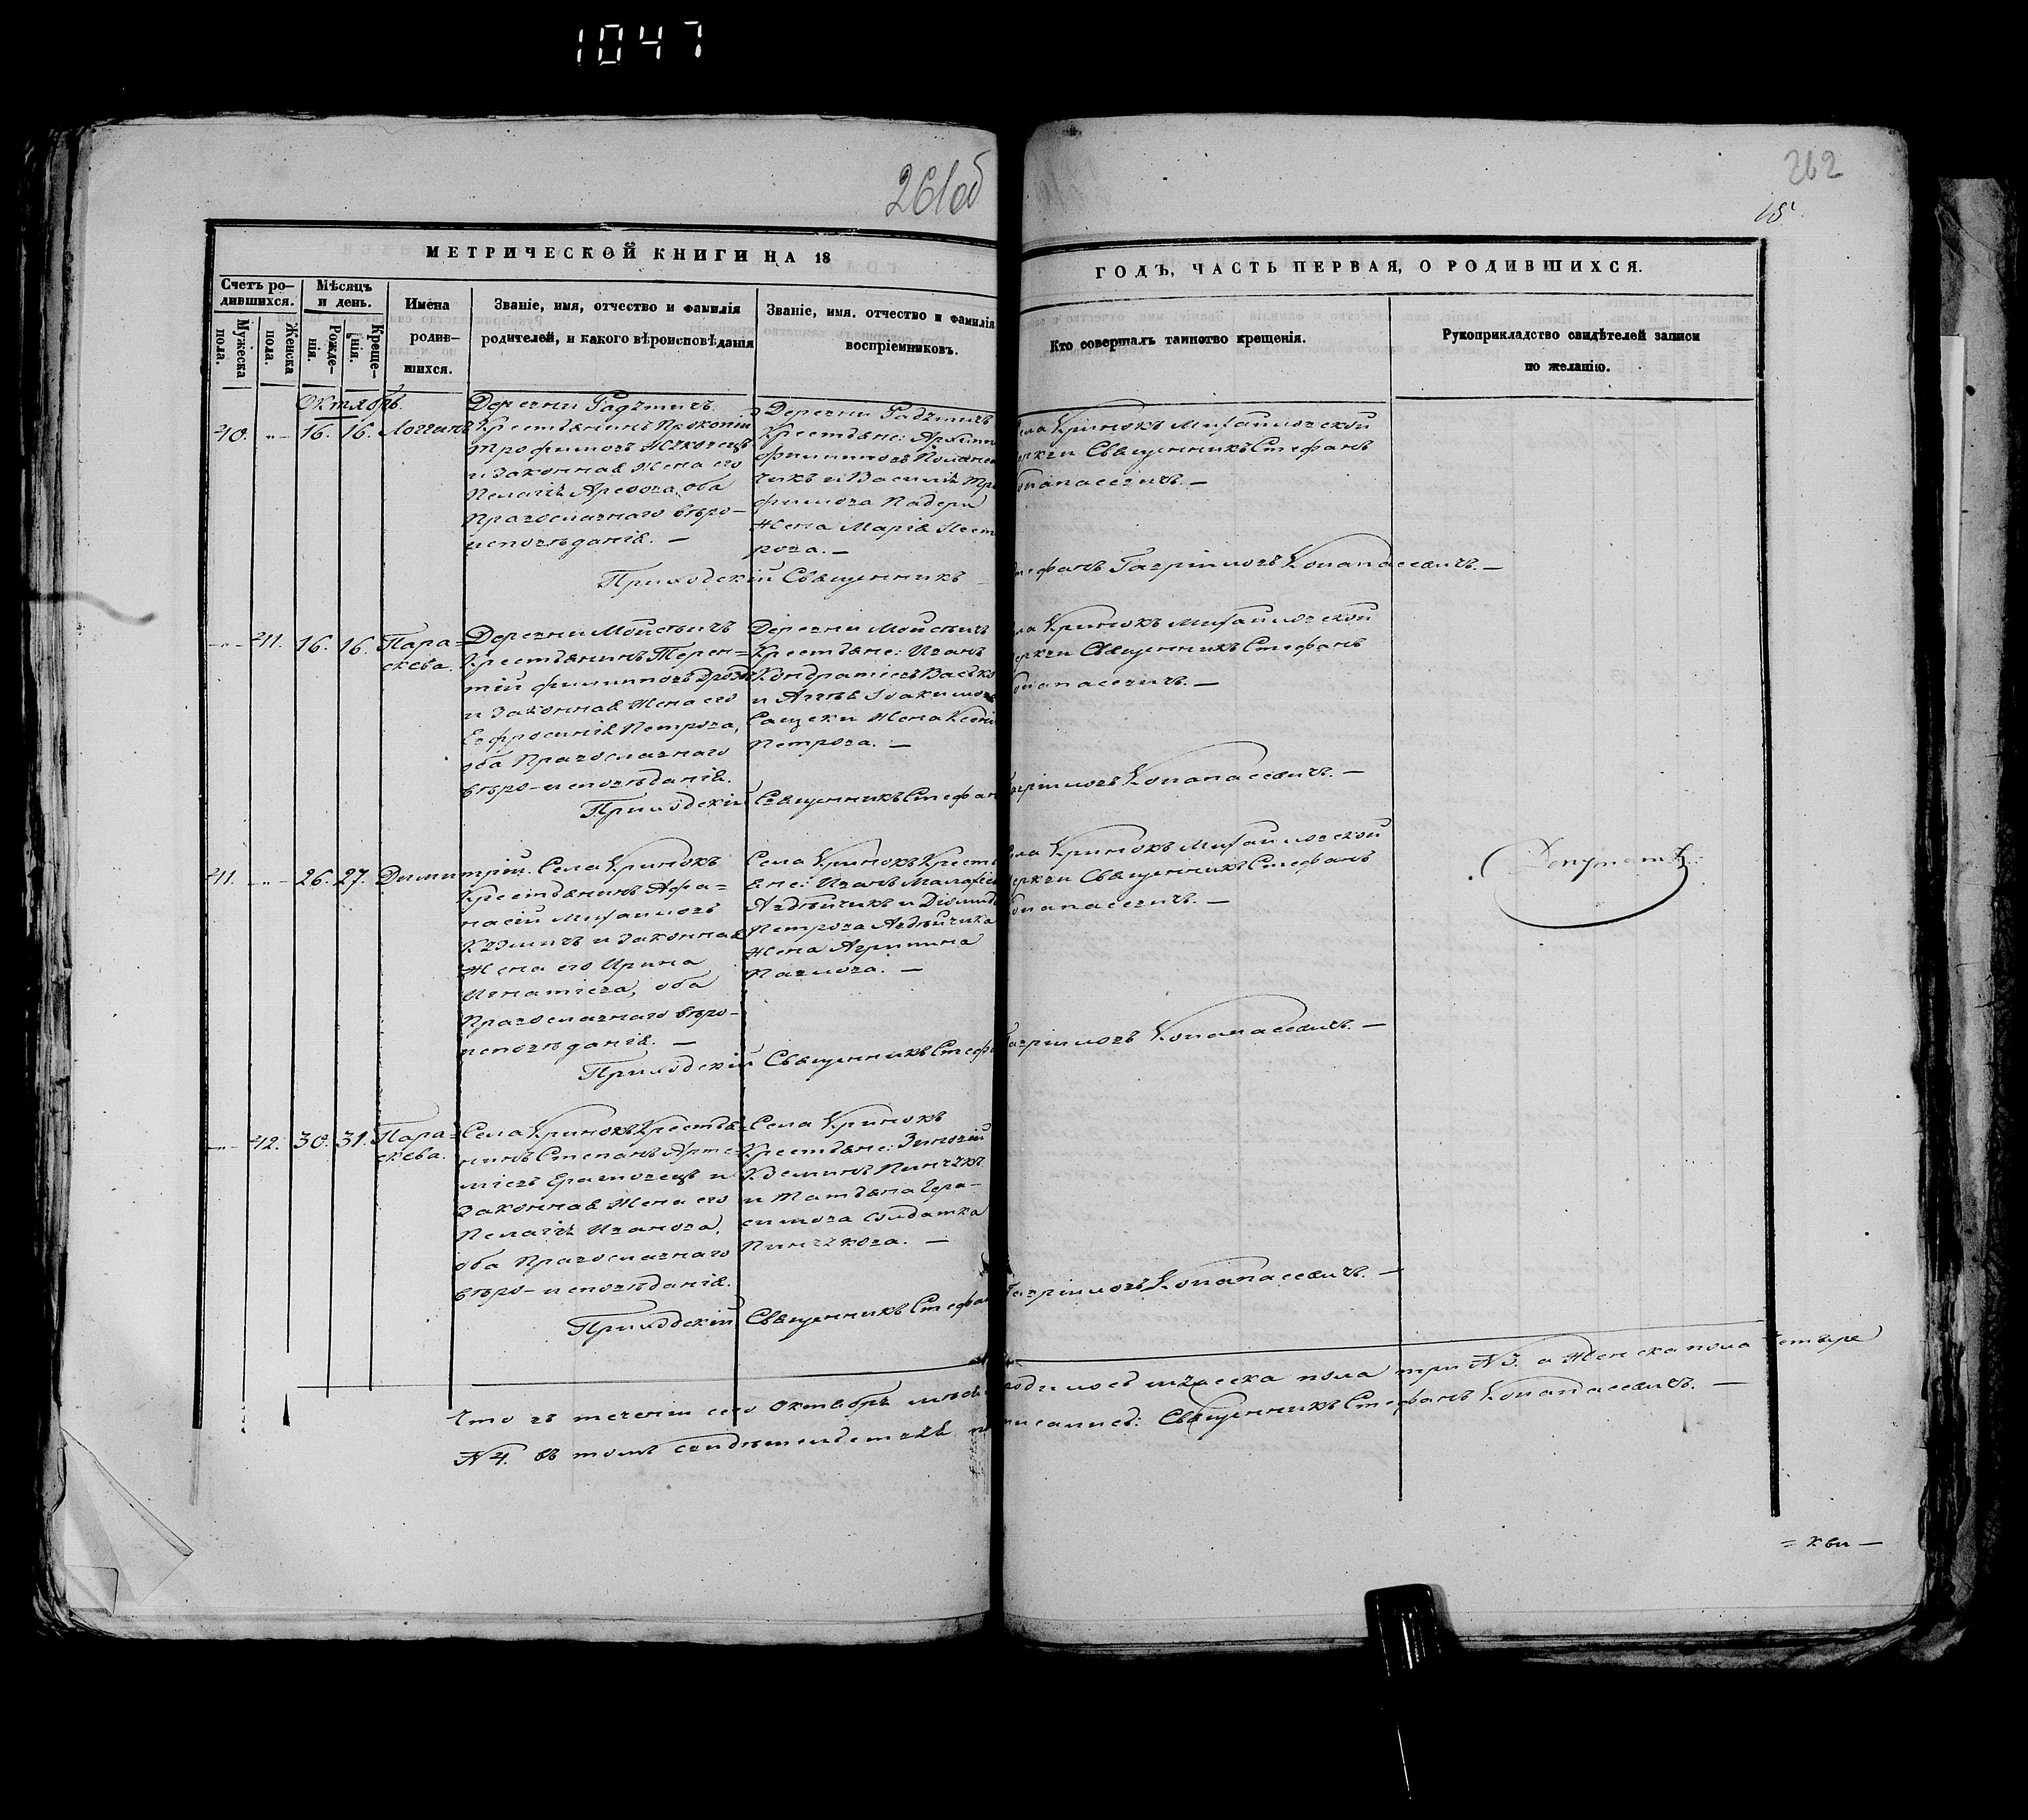 1047
261об
262
15
МЕТРИЧЕСКОЙ КНИГИ НА 18
ГОДЪ, ЧАСТЬ ПЕРВАЯ, О РОДИВШИХСЯ.
Счетъ ро-
дившихся.
Мужеска
пола.
Женска
пола.
Мѣсяцъ
и день.
Рожде-
нія.
Креще-
нія.
Имена
родив-
шихся.
Званіе, имя, отчество и фамилія
родителей, и какого вѣроисповѣданія
Званіе, имя, отчество и фамилія
воспріемниковъ.
Кто совершалъ таинство крещенія.
Рукоприкладство свидѣтелей записи
по желанію.
Октябрь.
40. „ 16. 16. Логгинъ
Деревни
Крестьянинъ Прокопій
Трофимовъ
и законная жена его
Пелагія Арефова, оба
Православнаго вѣро-
исповѣданія. —
Деревни
Крестьяне:
Филиповъ
фимова
жена Марія
рова. —
села Кринокъ Михайловской
церкви Священникъ Стефанъ
Конапасевичъ. —
Приходскій Священникъ Стефанъ Гавріиловъ Конапасевичъ. —
„ 41. 16. 16. Пара=
скева.
Деревни Мойсѣвичъ
Крестьянинъ Терен=
тій Филиповъ
и законная жена его
Евфросинія Петрова,
оба Православнаго
вѣро-исповѣданія.
Деревни Мойсѣвичъ
Крестьяне: Иванъ
Кондратіевъ
и
жена Ксенія
Петрова. —
села Кринокъ Михайловской
церкви Священникъ Стефанъ
Конапасевичъ. —
Приходскій Священникъ Стефанъ Гавріиловъ Конапасевичъ. —
41. „ 26. 27. Димитрій.
Села Кринокъ
Крестьянинъ Афа=
насій Михайловъ
и законная
жена его Ирина
Игнатіева, оба
Православнаго вѣро-
исповѣданія. —
Села Кринокъ Кресть
яне: Иванъ
Авдѣйчикъ и
Петрова Авдѣйчика
жена Агрипина
Павлова. —
села Кринокъ Михайловской
церкви Священникъ Стефанъ
Конапасевичъ. —
Депутатъ
Приходскій Священникъ Стефанъ Гавріиловъ Конапасевичъ. —
„ 42. 30. 31. Пара=
скева.
Села Кринокъ Крестья
нинъ Степанъ Арте=
міевъ и
законная жена его
Пелагія Иванова,
оба Православнаго
вѣро-исповѣданія.
Села Кринокъ
Крестьяне: Зиновій
и Татьяна Гера-
симова солдатка
Пинчукова. —
Приходскій Священникъ Стефанъ Гавріиловъ Конапасевичъ. —
Что въ теченіи сего Октября мѣсяца родилось мужеска пола три №3. а женска пола четыре
№4. въ томъ свидѣтельствуя подписались: Священникъ Стефанъ Конапасевичъ. —